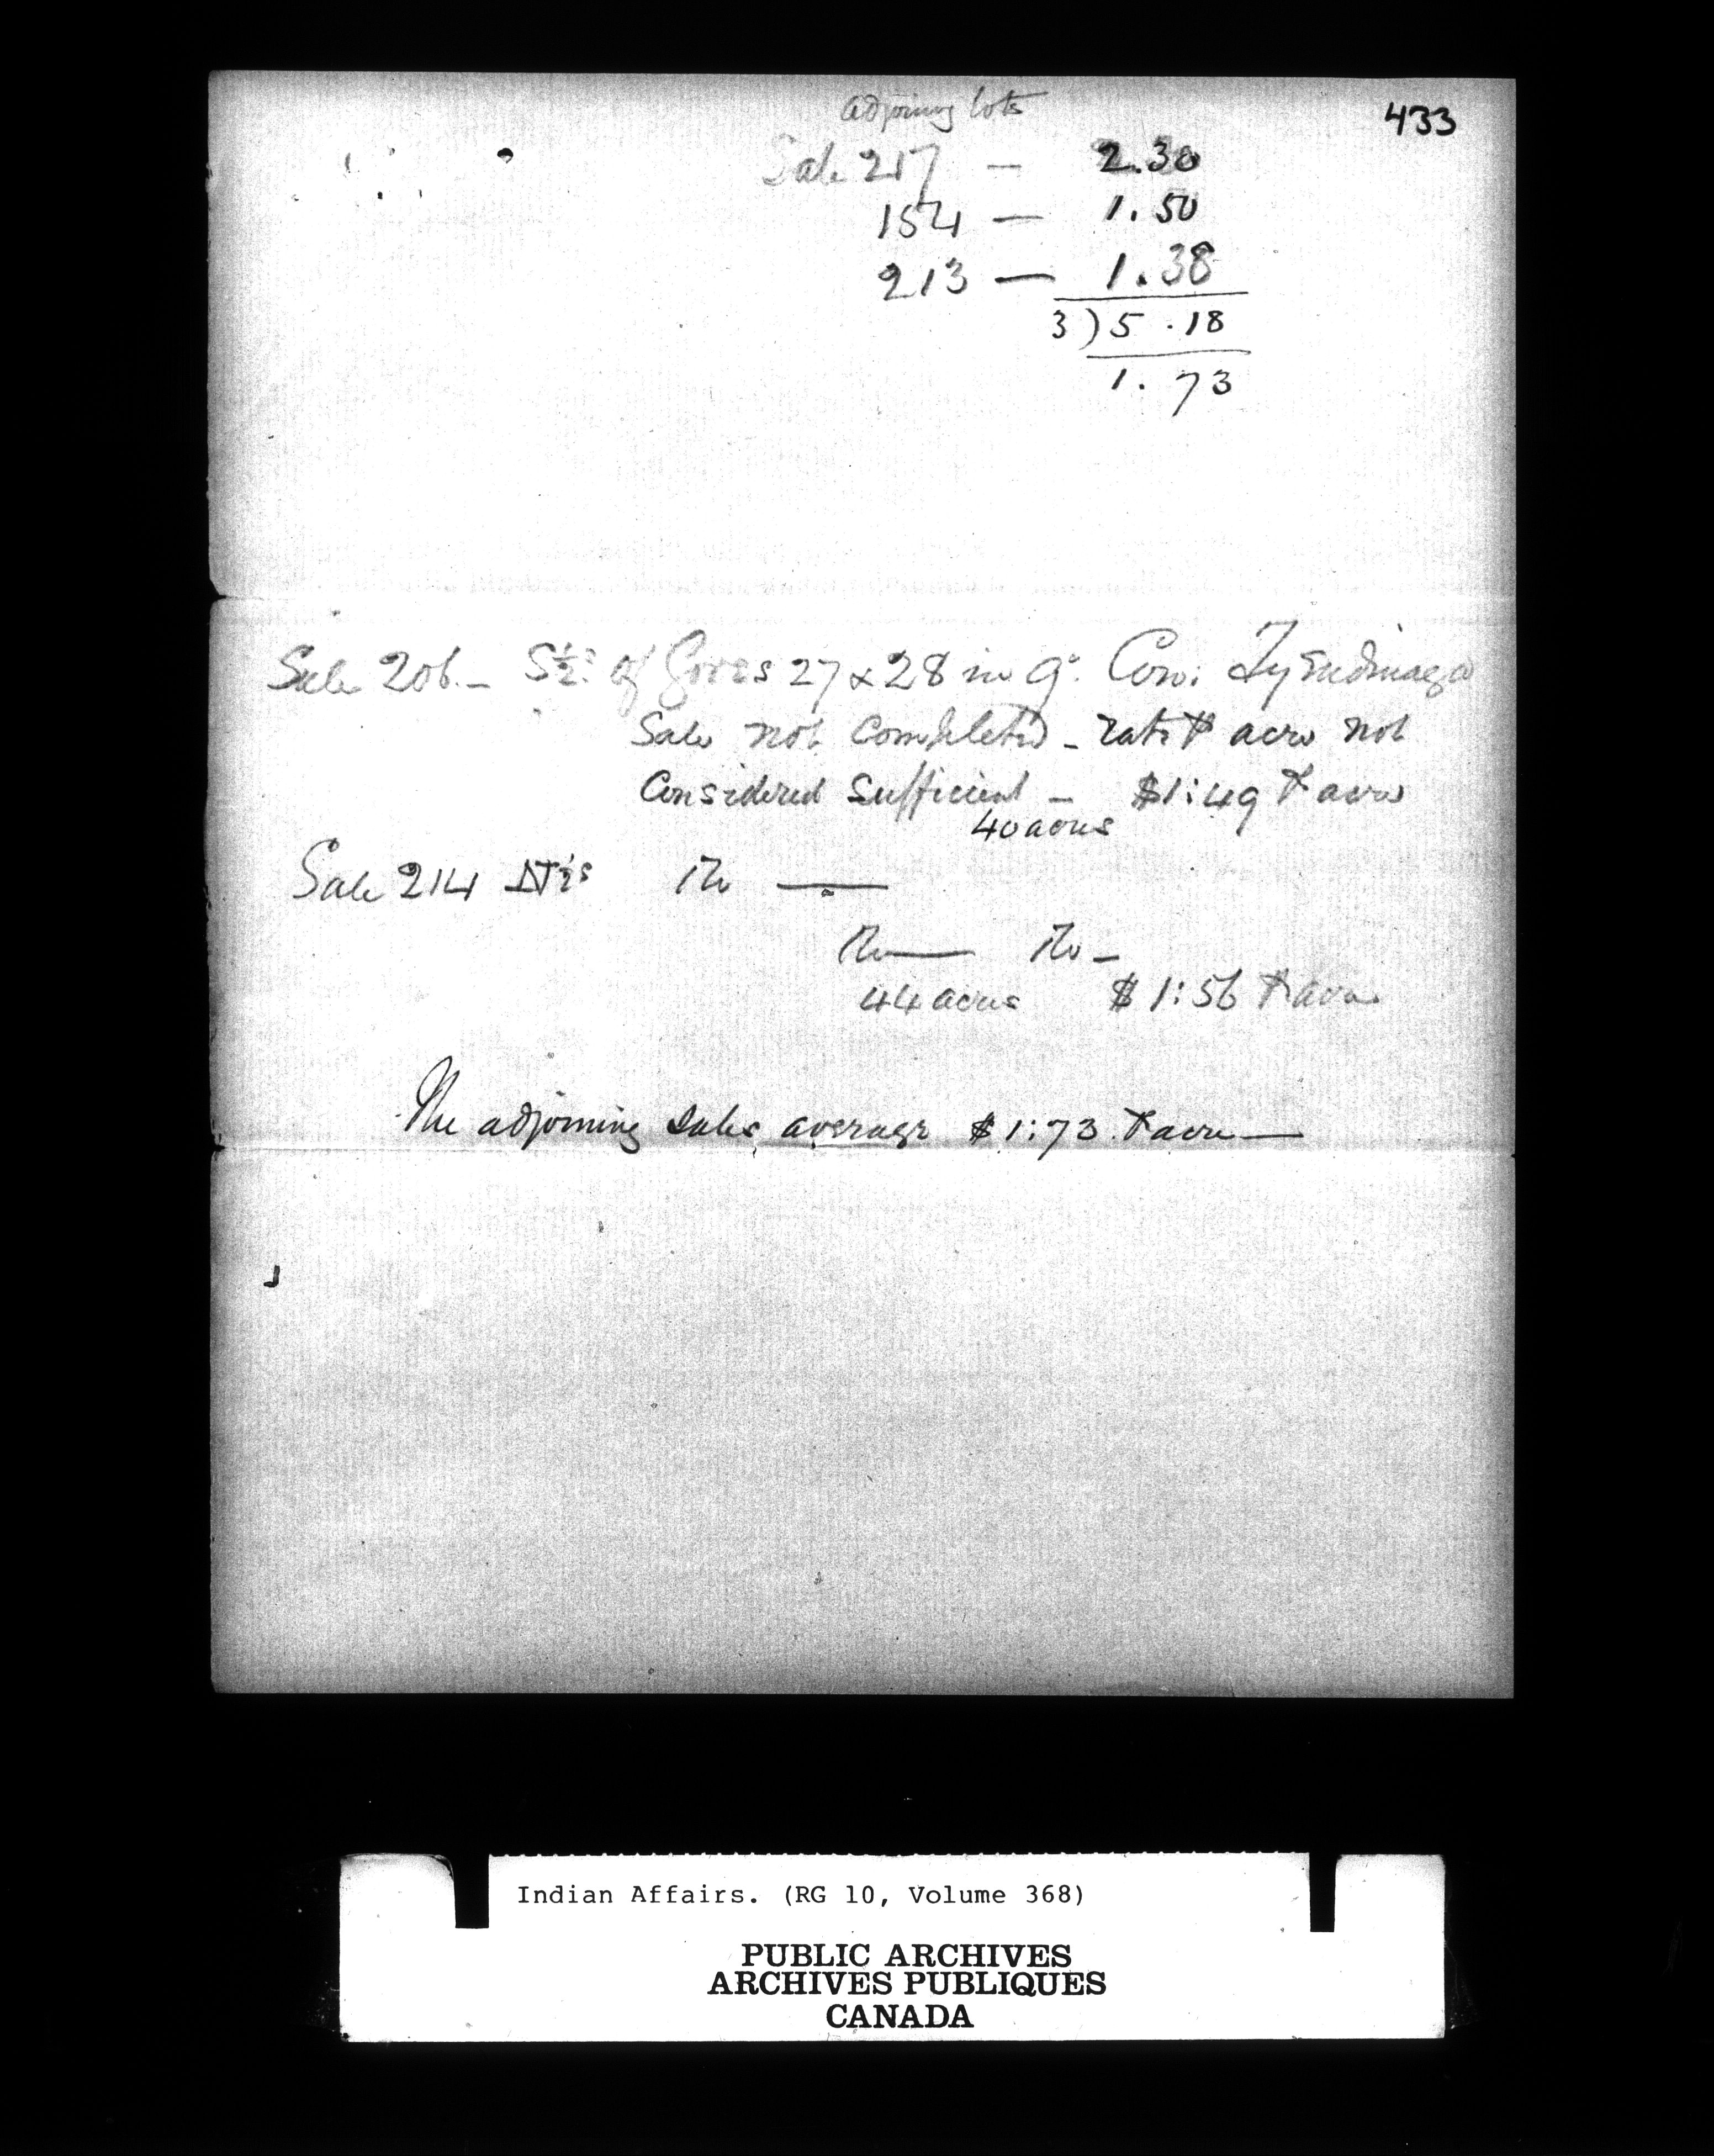 433
adjoining lots
Sale 217 — 2.30
154 — 1.50
213 — 1.38
3 ) 5.18
1.73
Sale 206 – S½s of Gores 27 & 28 in 9. Con: Tyendinaga
Sale not completed – rate ⅌ acre not
Considered sufficient – $1:49 ⅌ acre
40 acres
Sale 214 N½s Do —
Do — Do –
44 acres $1:56 ⅌ acre
The adjoining sales average $1:73 ⅌ acre —
Indian Affairs. (RG 10, Volume 368)
PUBLIC ARCHIVES
ARCHIVES PUBLIQUES
CANADA